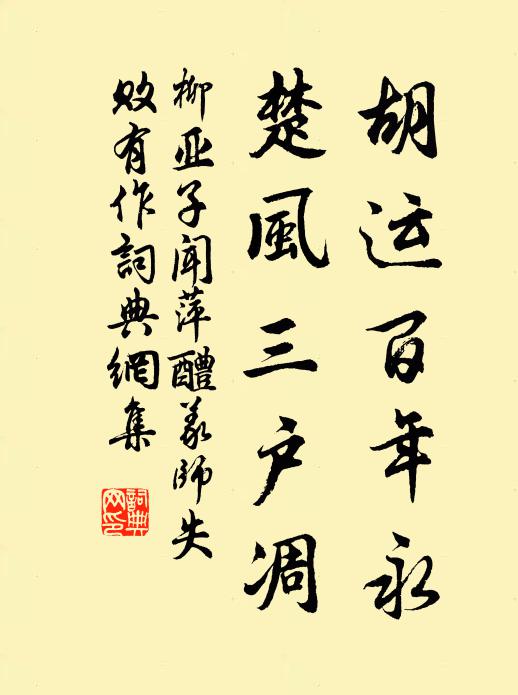 胡运百年永
楚風三户凋
柳亚子闻萍醴义师失
败有作詞典網集
詞典
网印